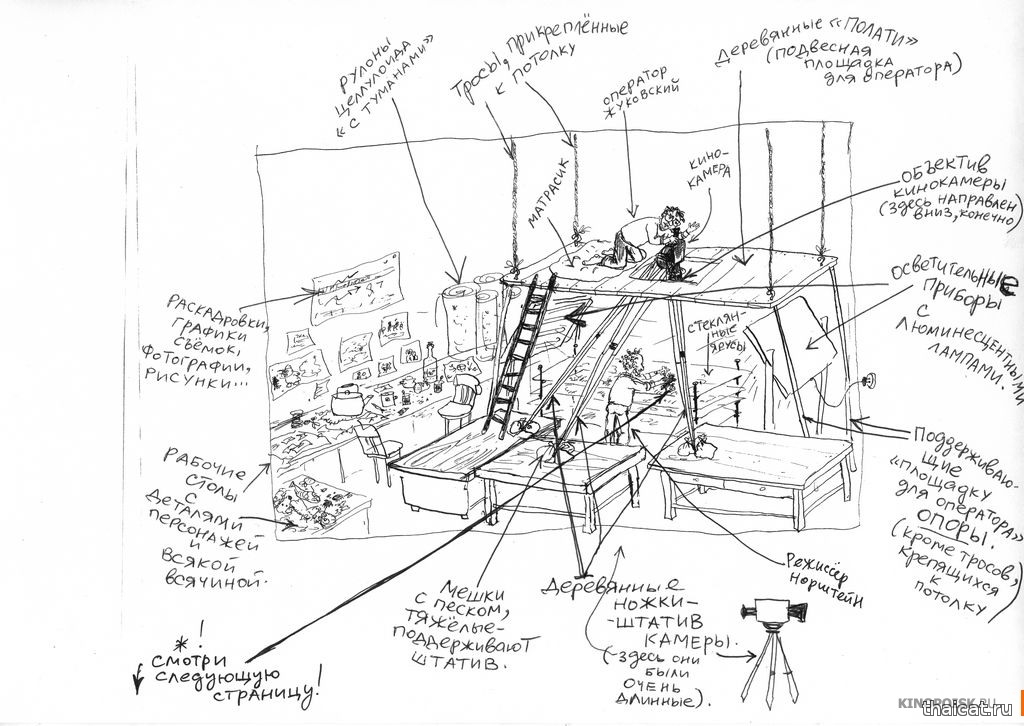 РУЛОНЫ
ЦЕЛЛУЛОИДА
«С ТУМАНАМИ»
ТРОСЫ, ПРИКРЕПЛЁННЫЕ
К ПОТОЛКУ
ОПЕРАТОР
ЖУКОВСКИЙ
ДЕРЕВЯННЫЕ «ПОЛАТИ»
(ПОДВЕСНАЯ
ПЛОЩАДКА
ДЛЯ ОПЕРАТОРА)
МАТРАСИК
КИНО-
КАМЕРА
ОБЪЕКТИВ
КИНОКАМЕРЫ
(ЗДЕСЬ НАПРАВЛЕН
ВНИЗ, КОНЕЧНО)
ОСВЕТИТЕЛЬНЫЕ
ПРИБОРЫ
С
ЛЮМИНЕСЦЕНТНЫМИ
ЛАМПАМИ.
РАСКАДРОВКИ,
ГРАФИКИ
СЪЁМОК,
ФОТОГРАФИИ,
РИСУНКИ...
СТЕКЛЯН-
НЫЕ
ЯРУСЫ
РАБОЧИЕ
СТОЛЫ
С
ДЕТАЛЯМИ
ПЕРСОНАЖЕЙ
И
ВСЯКОЙ
ВСЯЧИНОЙ.
ПОДДЕРЖИВАЮ-
ЩИЕ
«ПЛОЩАДКУ
ДЛЯ ОПЕРАТОРА»
ОПОРЫ.
(КРОМЕ ТРОСОВ,
КРЕПЯЩИХСЯ
К
ПОТОЛКУ)
МЕШКИ
С ПЕСКОМ,
ТЯЖЁЛЫЕ-
ПОДДЕРЖИВАЮТ
ШТАТИВ.
ДЕРЕВЯННЫЕ
НОЖКИ-
-ШТАТИВ
КАМЕРЫ.
(ЗДЕСЬ ОНИ
БЫЛИ
ОЧЕНЬ
ДЛИННЫЕ).
РЕЖИССЁР
НОРШТЕЙН
* !
СМОТРИ
СЛЕДУЮЩУЮ
СТРАНИЦУ!
KINOROISK.RU
thaicat.ru